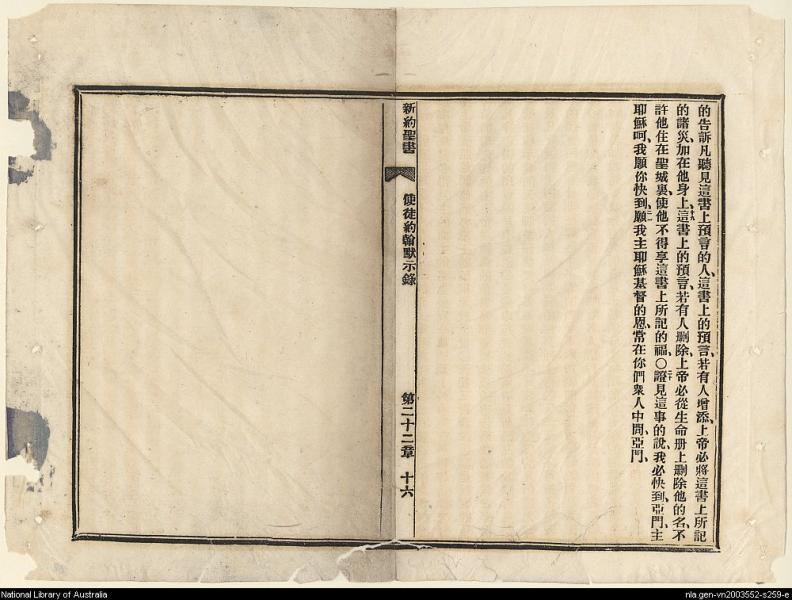 的告訴凡聽見這書上預言的人、這書上的預言、若有人增添、上帝必將這書上所記
的諸災、加在他身上、這書上的預言、若有人刪除、上帝必從生命册上刪除他的名、不
許他住在聖城裏、使他不得享這書上所記的福、〇證見這事的說、我必快到、亞門、主
耶穌呵、我願你快到、願我主耶穌基督的恩、常在你們衆人中間、亞門、
新約聖書 使徒約翰默示錄 第二十二章 十六
National Library of Australia
nla.gen-vn2003552-s259-e